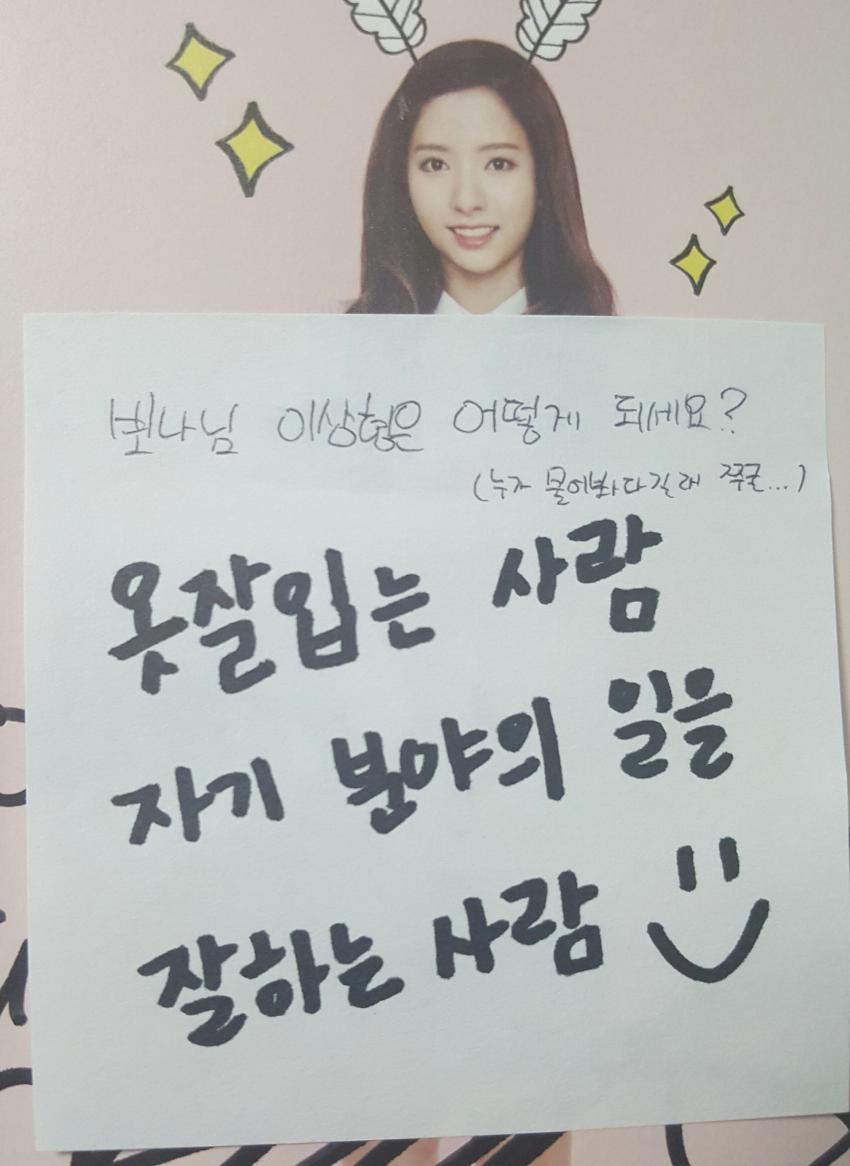 뽀나님 이상형은 어떻게 되세요?
(누가 물어봐 다길래 쭈굴...)
옷잘입는 사람
자기 분야의 일을
잘하는 사람